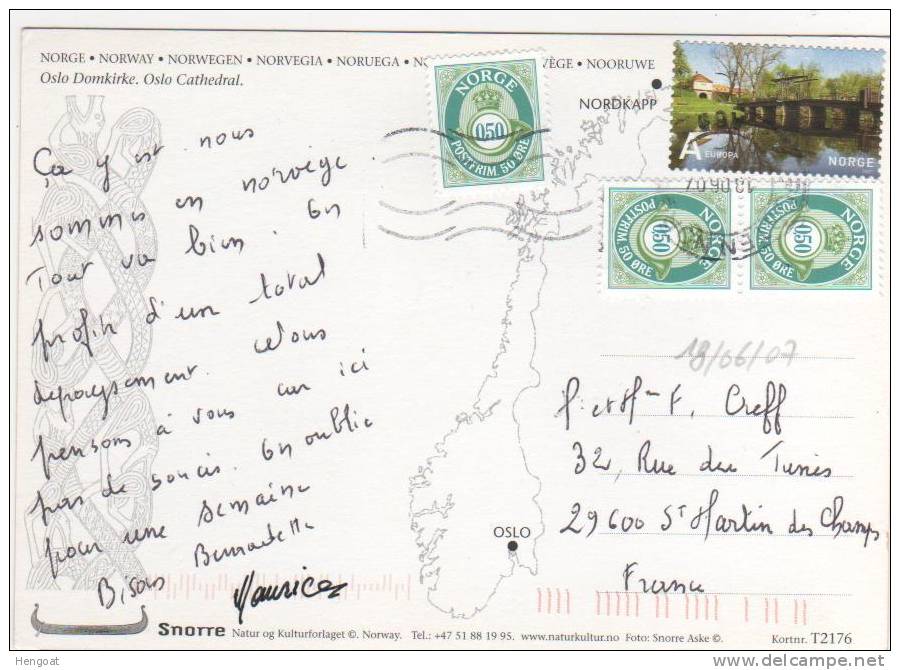 NORGE • NORWAY • NORWEGEN • NORVEGIA • NORUEGA • NO VÈGE • NOORUWE
Oslo Domkirke. Oslo Cathedral.
NORDKAPP
NORGE
050
POSTFRIM. 50 ØRE
A EUROPA
NORGE
18 06 07
NORGE
050
POSTFRIM. 50 ØRE
NORGE
050
POSTFRIM. 50 ØRE
Ça y est nous
sommes en norvège.
Tout va bien. On
profite d'un total
depaysement. et nous
pensons à vous car ici
pas de soucis. On oublie
pour une semaine
Bisous Bernadette
Maurice
18/06/07
F. Creff
32, Rue des
29600 St Martin des Champs
France
OSLO
Snorre Natur og Kulturforlaget ©. Norway. Tel.: +47 51 88 19 95. www.naturkultur.no Foto: Snorre Aske ©. Kortnr. T2176
Hengoat
www.delcampe.net